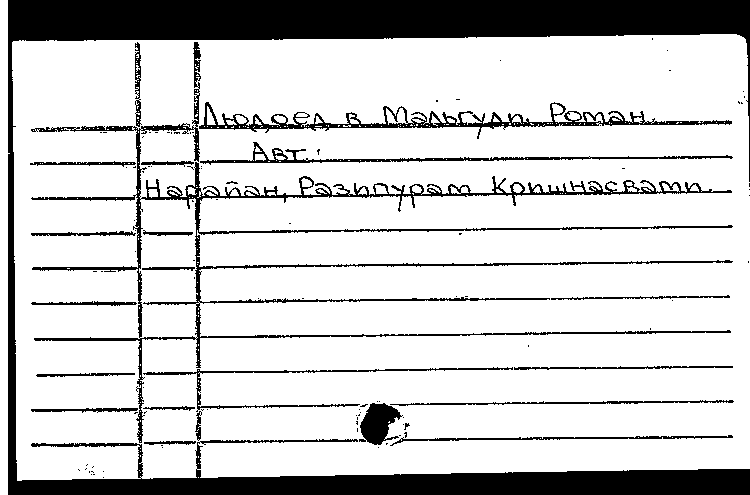 Людоед в Мальгуди. Роман.
Авт.:
Нарайан, Разипурам Кришнасвами.